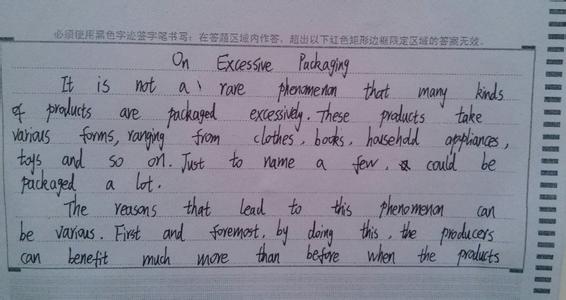 必须使用黑色字迹签字笔书写：在答题区域内作答，超出以下红色矩形边框限定区域的答案无效。
On Excessive Packaging
It is not a rare phenomenon that many kinds
of products are packaged excessively. These products take
various forms, ranging from clothes, books, household appliances,
toys and so on. Just to name a few, could be
packaged a lot.
The reasons that lead to this phenomenon can
be various. First and foremost, by doing this, the producers
can benefit much more than before when the products